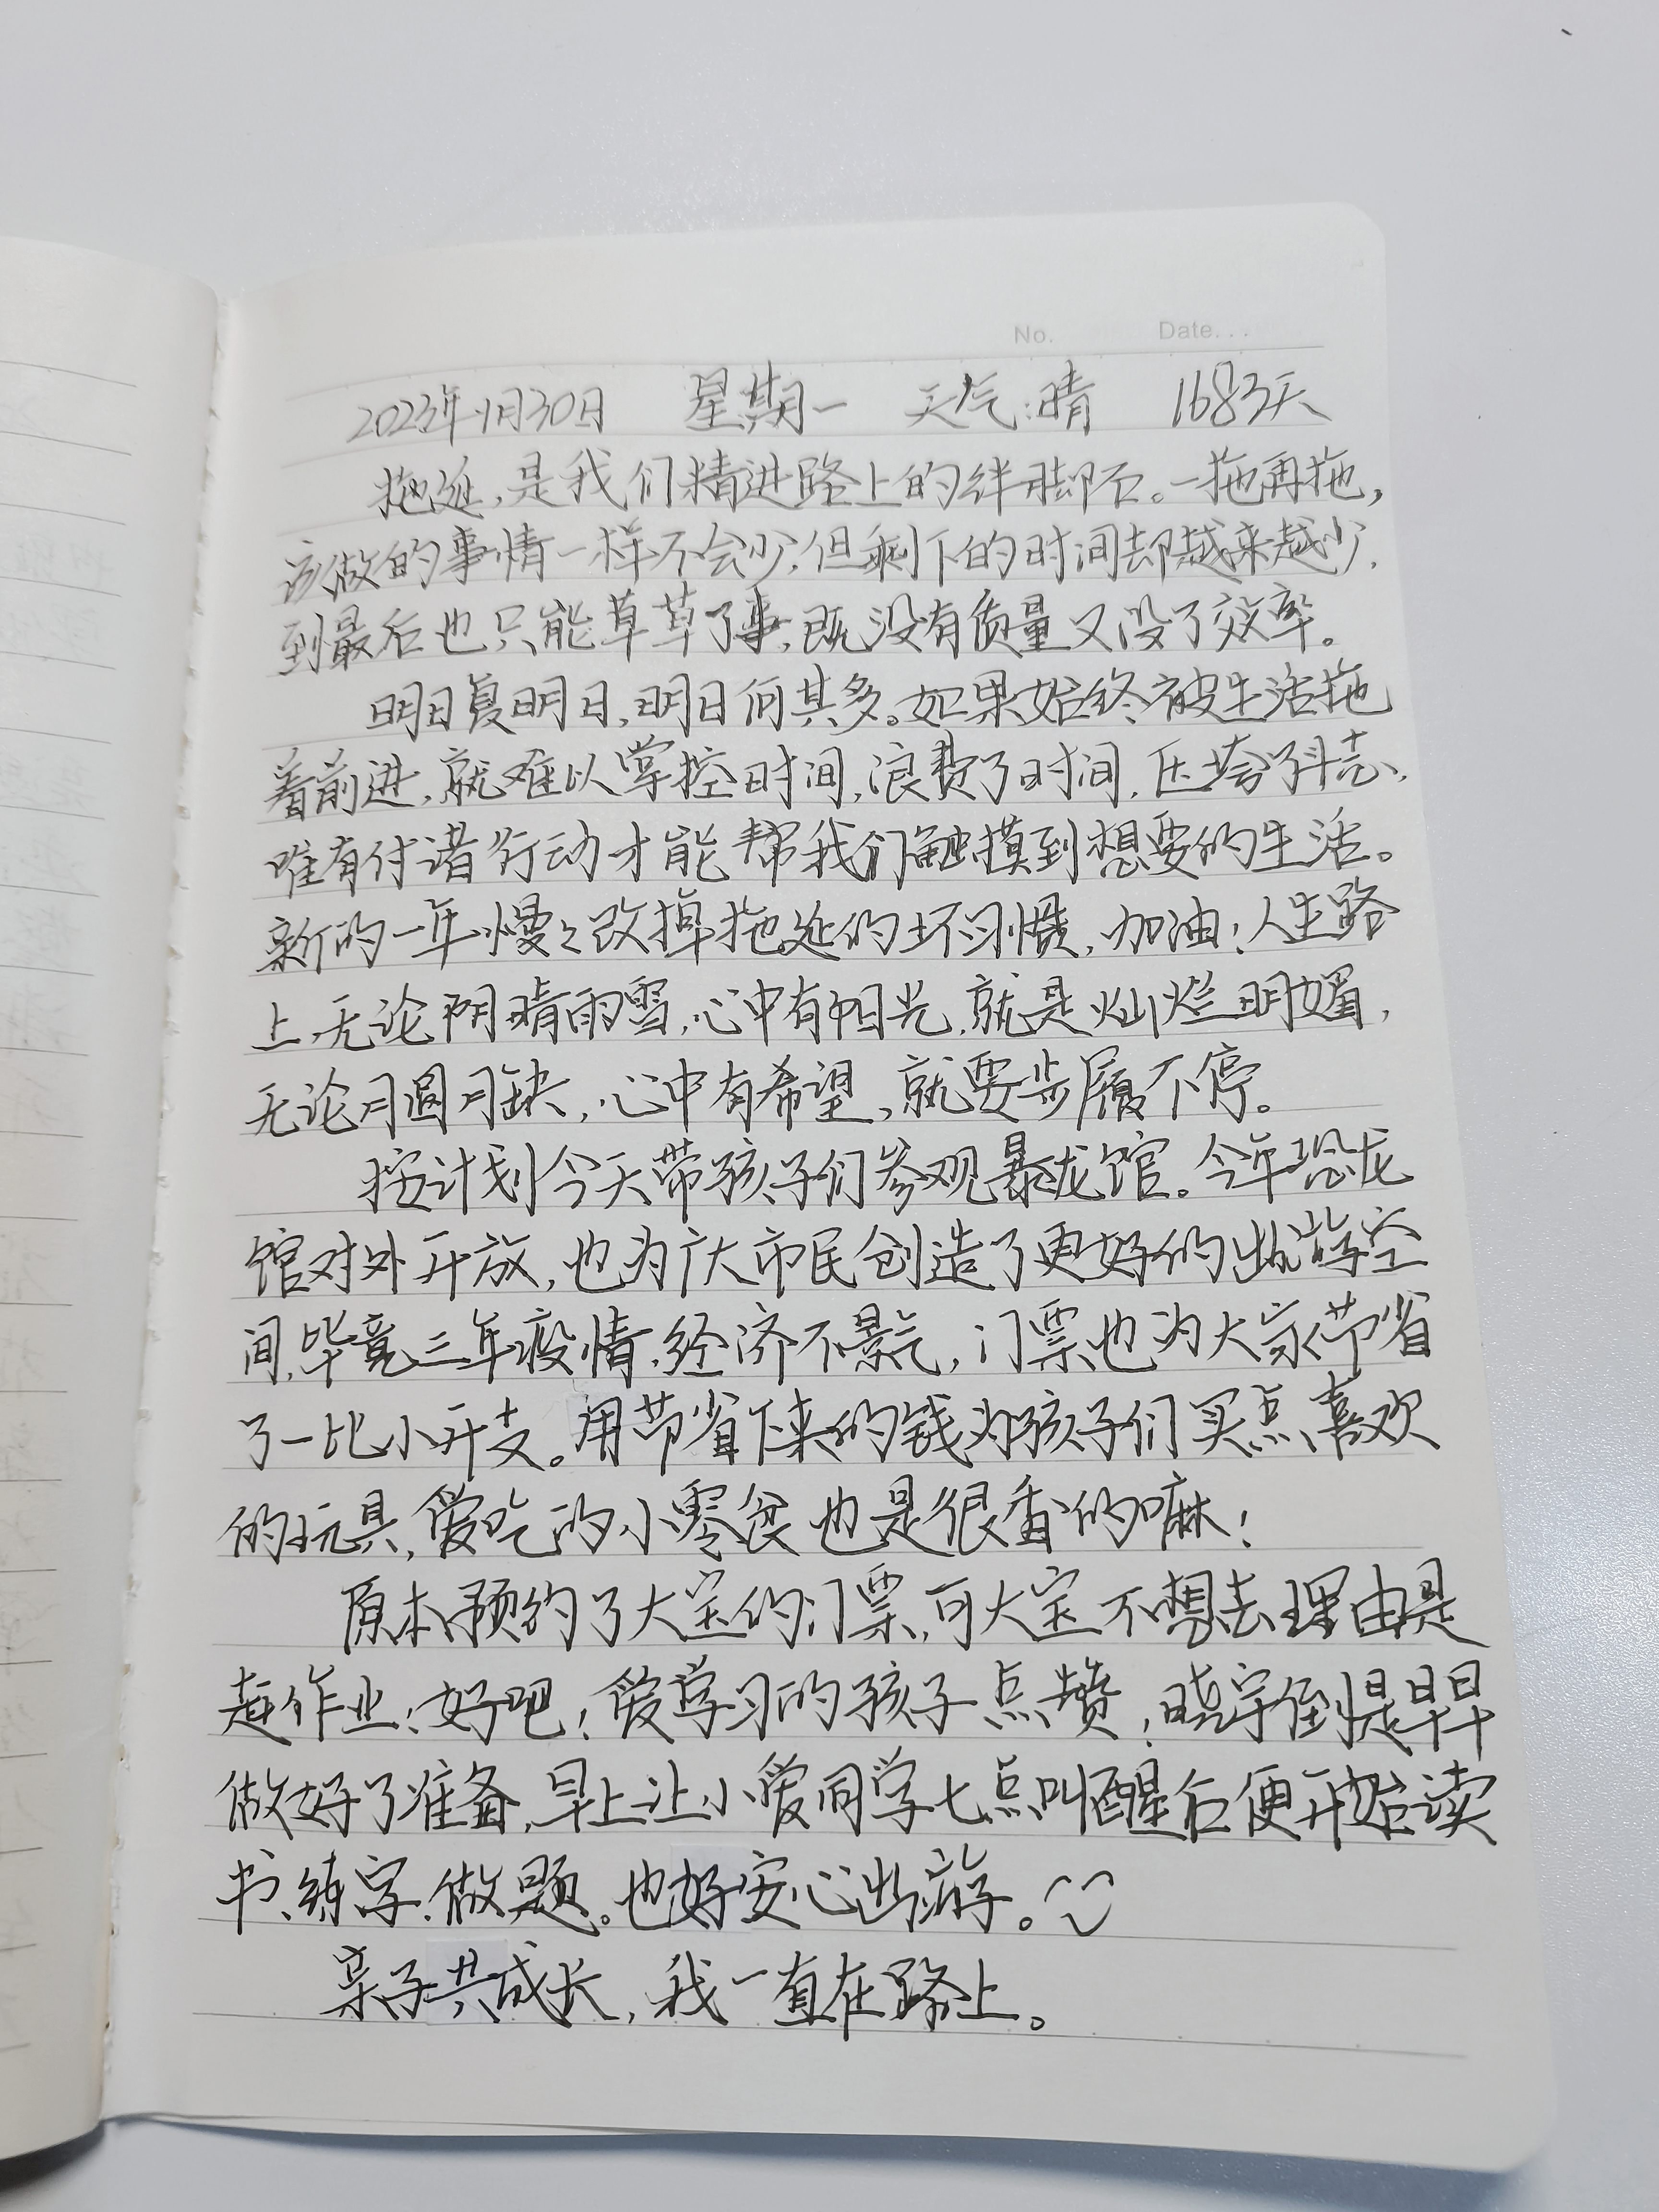 No. Date...
2023年1月30日 星期一 天气:晴 1683天
拖延,是我们精进路上的绊脚石。一拖再拖,
该做的事情一样不会少,但剩下的时间却越来越少,
到最后也只能草草了事,既没有质量又没了效率。
明日复明日,明日何其多。如果始终被生活拖
着前进,就难以掌控时间,浪费了时间,压垮了斗志,
唯有付诸行动才能帮我们触摸到想要的生活。
新的一年慢々改掉拖延的坏习惯,加油!人生路
上,无论阴晴雨雪,心中有阳光,就是灿烂明媚,
无论月圆月缺,心中有希望,就要步履不停。
按计划今天带孩子们参观暴龙馆。今年恐龙
馆对外开放,也为广大市民创造了更好的出游空
间,毕竟三年疫情,经济不景气,门票也为大家节省
了一比小开支。用节省下来的钱为孩子们买点喜欢
的玩具,爱吃的小零食也是很香的嘛!
原本预约了大宝的门票,可大宝不想去理由是
赶作业!好吧!爱学习的孩子点赞!晓宇倒是早早
做好了准备,早上让小爱同学七点叫醒后便开始读
书、练字、做题。也好安心出游。
亲子共成长,我一直在路上。